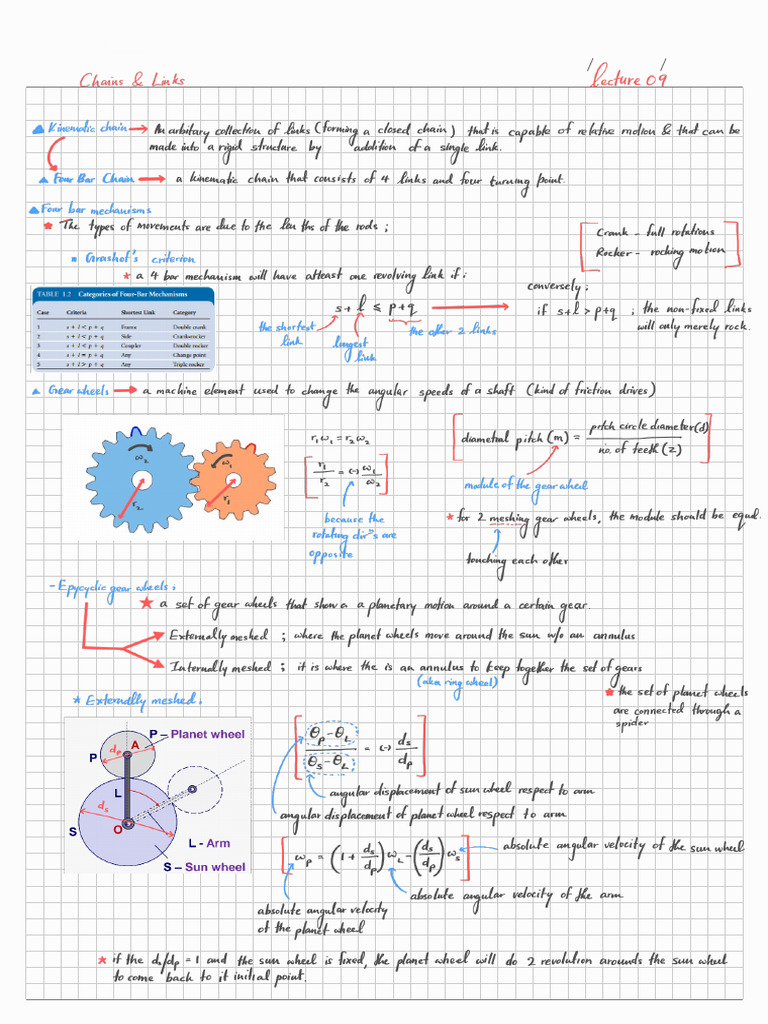 Chains & Links
Lecture 09
Kinematic chain → An arbitary collection of links (forming a closed chain) that is capable of relative motion & that can be
made into a rigid structure by addition of a single link.
Four Bar Chain → a kinematic chain that consists of 4 links and four turning point.
Four bar mechanisms
★ The types of movements are due to the lenths of the rods ;
Crank - full rotations
Rocker - rocking motion
Grashof's criterion
★ a 4 bar mechanism will have atleast one revolving link if :
TABLE 1.2 Categories of Four-Bar Mechanisms
Case Criteria Shortest Link Category
1 s + l < p + q Frame Double crank
2 s + l < p + q Side Crank-rocker
3 s + l < p + q Coupler Double rocker
4 s + l = p + q Any Change point
5 s + l > p + q Any Triple rocker
s + l ≤ p + q
the shortest
link
longest
link
the other 2 links
conversely ;
if s+l > p+q ; the non-fixed links
will only merely rock.
Gear wheels → a machine element used to change the angular speeds of a shaft (kind of friction drives)
ω₂
r₂
ω₁
r₁
r₁ω₁ = r₂ω₂
r₁/r₂ = (-) ω₁/ω₂
because the
rotating dirⁿs are
opposite
diametral pitch (m) = pitch circle diameter (d) / no. of teeth (z)
module of the gear wheel
★ for 2 meshing gear wheels, the module should be equal.
touching each other
- Epycyclic gear wheels :
★ a set of gear wheels that show a a planetary motion around a certain gear.
Externally meshed ; where the planet wheels move around the sun w/o an annulus
Internally meshed ; it is where the is an annulus to keep together the set of gears
(aka ring wheel)
★ the set of planet wheels
are connected through a
spider
* Externally meshed :
P – Planet wheel
P
dp
A
L
ds
S
O
L - Arm
S – Sun wheel
θP - θL / θS - θL = (-) ds/dp
angular displacement of sun wheel respect to arm
angular displacement of planet wheel respect to arm
ωP = (1 + ds/dp) ωL - (ds/dp) ωs
absolute angular velocity of the sun wheel
absolute angular velocity of the arm
absolute angular velocity
of the planet wheel
★ if the ds/dp = 1 and the sun wheel is fixed, the planet wheel will do 2 revolution arounds the sun wheel
to come back to it initial point.